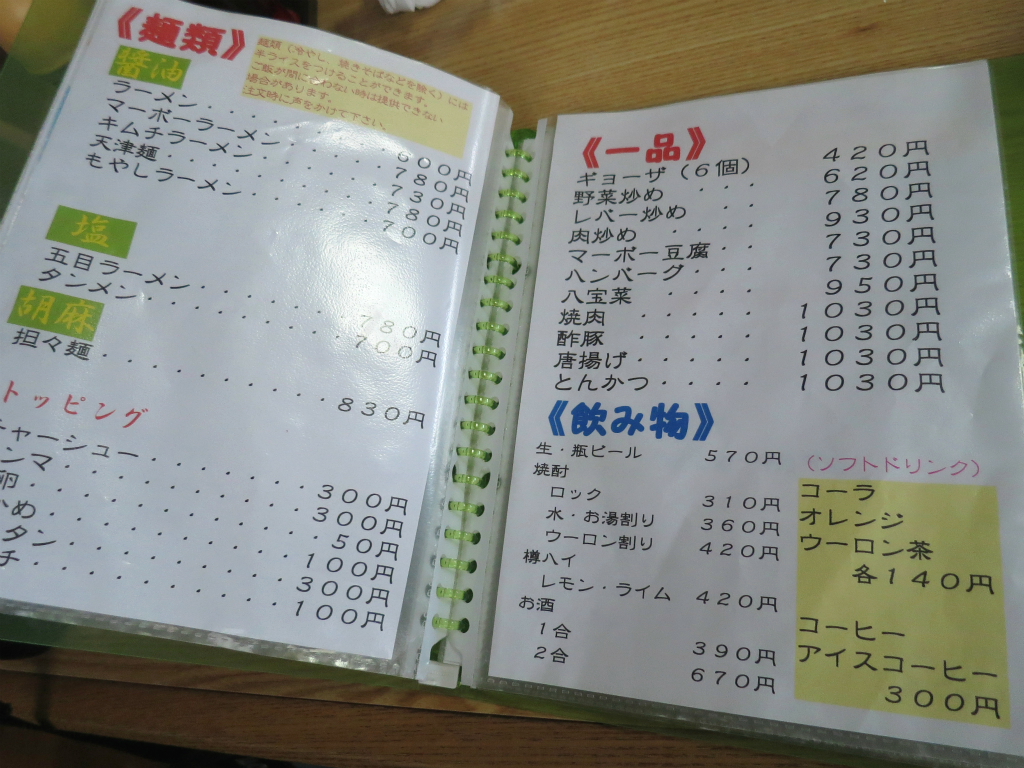 《麺類》
麺類(冷やし、焼きそばなどを除く)には
半ライスをつけることができます。
ご飯が間に合わない時は提供できない
場合があります。
注文時に声をかけて下さい。
醤油
ラーメン・・・・・・・・・600円
マーボーラーメン・・・・・・780円
キムチラーメン・・・・・・・730円
天津麺・・・・・・・・・・780円
もやしラーメン・・・・・・・700円
塩
五目ラーメン・・・・・・・・780円
タンメン・・・・・・・・・・700円
胡麻
担々麺・・・・・・・・・・830円
トッピング
チャーシュー・・・・・・・300円
ンマ・・・・・・・・・・300円
卵・・・・・・・・・・・50円
め・・・・・・・・・・・100円
タン・・・・・・・・・・300円
チ・・・・・・・・・・・100円
《一品》
ギョーザ(6個) 420円
野菜炒め ・・・ 620円
レバー炒め ・・ 780円
肉炒め ・・・・ 930円
マーボー豆腐・・ 730円
ハンバーグ・・・ 730円
八宝菜 ・・・・ 950円
焼肉 ・・・・・ 1030円
酢豚 ・・・・・ 1030円
唐揚げ・・・・・ 1030円
とんかつ・・・・ 1030円
《飲み物》
生・瓶ビール 570円
焼酎
ロック 310円
水・お湯割り 360円
ウーロン割り 420円
樽ハイ
レモン・ライム 420円
お酒
1合 390円
2合 670円
(ソフトドリンク)
コーラ
オレンジ
ウーロン茶
各140円
コーヒー
アイスコーヒー
300円